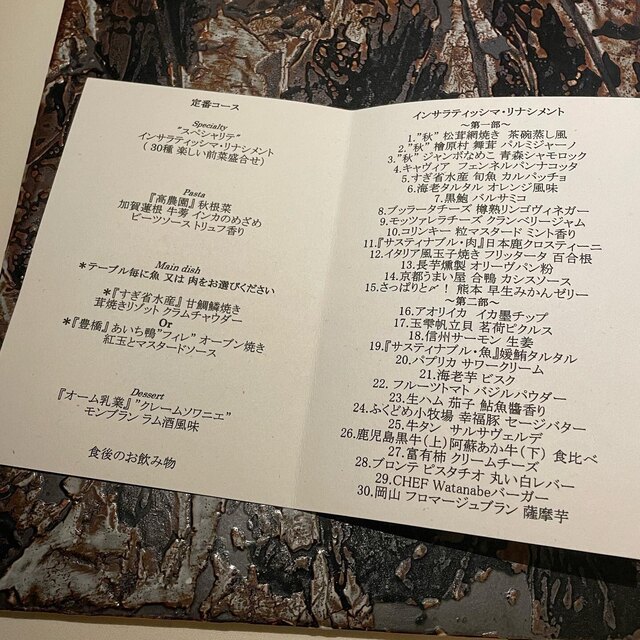 定番コース
Specialty
"スペシャリテ"
インサラティッシマ・リナシメント
( 30種 楽しい前菜盛合せ)
Pasta
『高農園』秋根菜
加賀蓮根 牛蒡 インカのめざめ
ビーツソース トリュフ香り
Main dish
*テーブル毎に魚 又は 肉をお選びください
*『すぎ省水産』甘鯛鱗焼き
茸焼きリゾット クラムチャウダー
Or
*『豊橋』あいち鴨"フィレ" オーブン焼き
紅玉とマスタードソース
Dessert
『オーム乳業』"クレームソワニエ"
モンブラン ラム酒風味
食後のお飲み物
インサラティッシマ・リナシメント
~第一部~
1."秋" 松茸網焼き 茶碗蒸し風
2."秋" 檜原村 舞茸 パルミジャーノ
3."秋" ジャンボなめこ 青森シャモロック
4.キャヴィア フェンネルパンナコッタ
5.すぎ省水産 旬魚 カルパッチョ
6.海老タルタル オレンジ風味
7.黒鮑 バルサミコ
8.ブッラータチーズ 樽熟リンゴヴィネガー
9.モッツァレラチーズ クランベリージャム
10.コリンキー 粒マスタード ミント香り
11.『サスティナブル・肉』日本鹿クロスティーニ
12.イタリア風玉子焼き フリッタータ 百合根
13.長芋燻製 オリーヴパン粉
14.京都うまい屋 合鴨 カシスソース
15.さっぱりと〆! 熊本 早生みかんゼリー
~第二部~
16.アオリイカ イカ墨チップ
17.玉雫帆立貝 茗荷ピクルス
18.信州サーモン 生姜
19.『サスティナブル・魚』媛鮪タルタル
20.パプリカ サワークリーム
21.海老芋 ビスク
22.フルーツトマト バジルパウダー
23.生ハム 茄子 鮎魚醤香り
24.ふくどめ小牧場 幸福豚 セージバター
25.牛タン サルサヴェルデ
26.鹿児島黒牛(上)阿蘇あか牛(下) 食比べ
27.富有柿 クリームチーズ
28.ブロンテ ピスタチオ 丸い白レバー
29.CHEF Watanabeバーガー
30.岡山 フロマージュブラン 薩摩芋